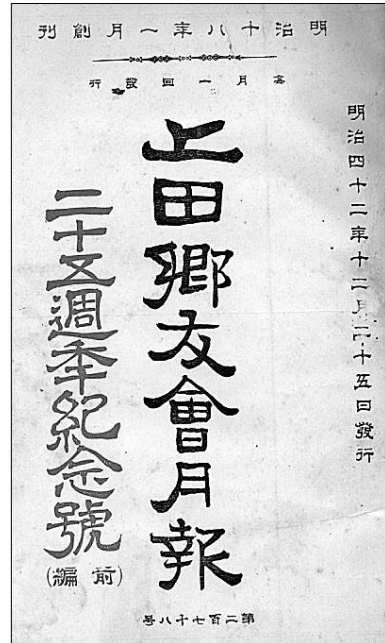 明治十八年一月創刊
毎月一回發行
明治四十二年十二月二十五日發行
上田郷友會月報
二十五週年紀念號
(前編)
第二百七十八号